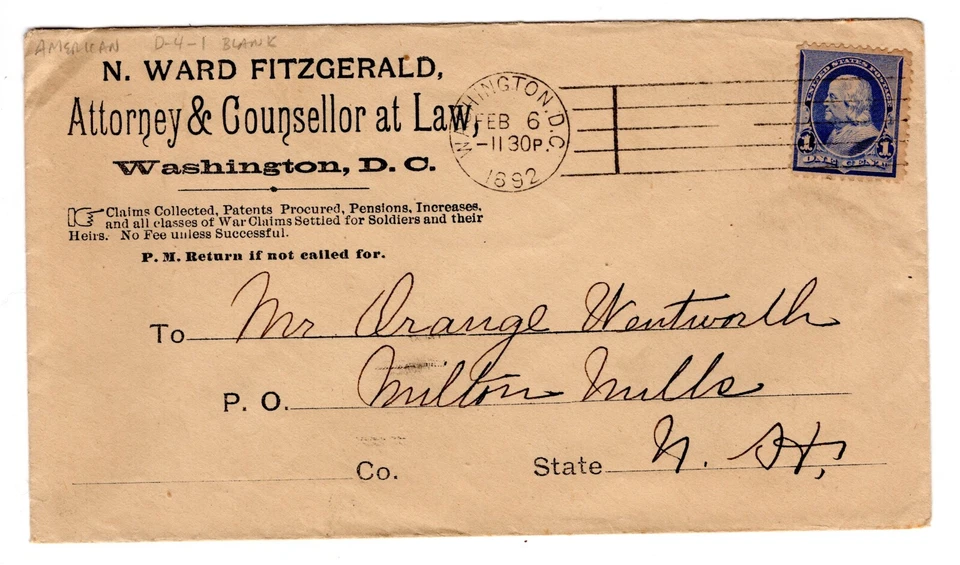 AMERICAN D-4-1 BLANK
N. WARD FITZGERALD,
Attorney & Counsellor at Law,
Washington, D. C.
Claims Collected, Patents Procured, Pensions, Increases,
and all classes of War Claims Settled for Soldiers and their
Heirs. No Fee unless Successful.
P. M. Return if not called for.
WASHINGTON, D.C.
FEB 6
-11 30 P.
1892
UNITED STATES POSTAGE
1 1
ONE CENT
To Mr Orange Wentworth
P. O. Milton Mills
Co. State N. H,